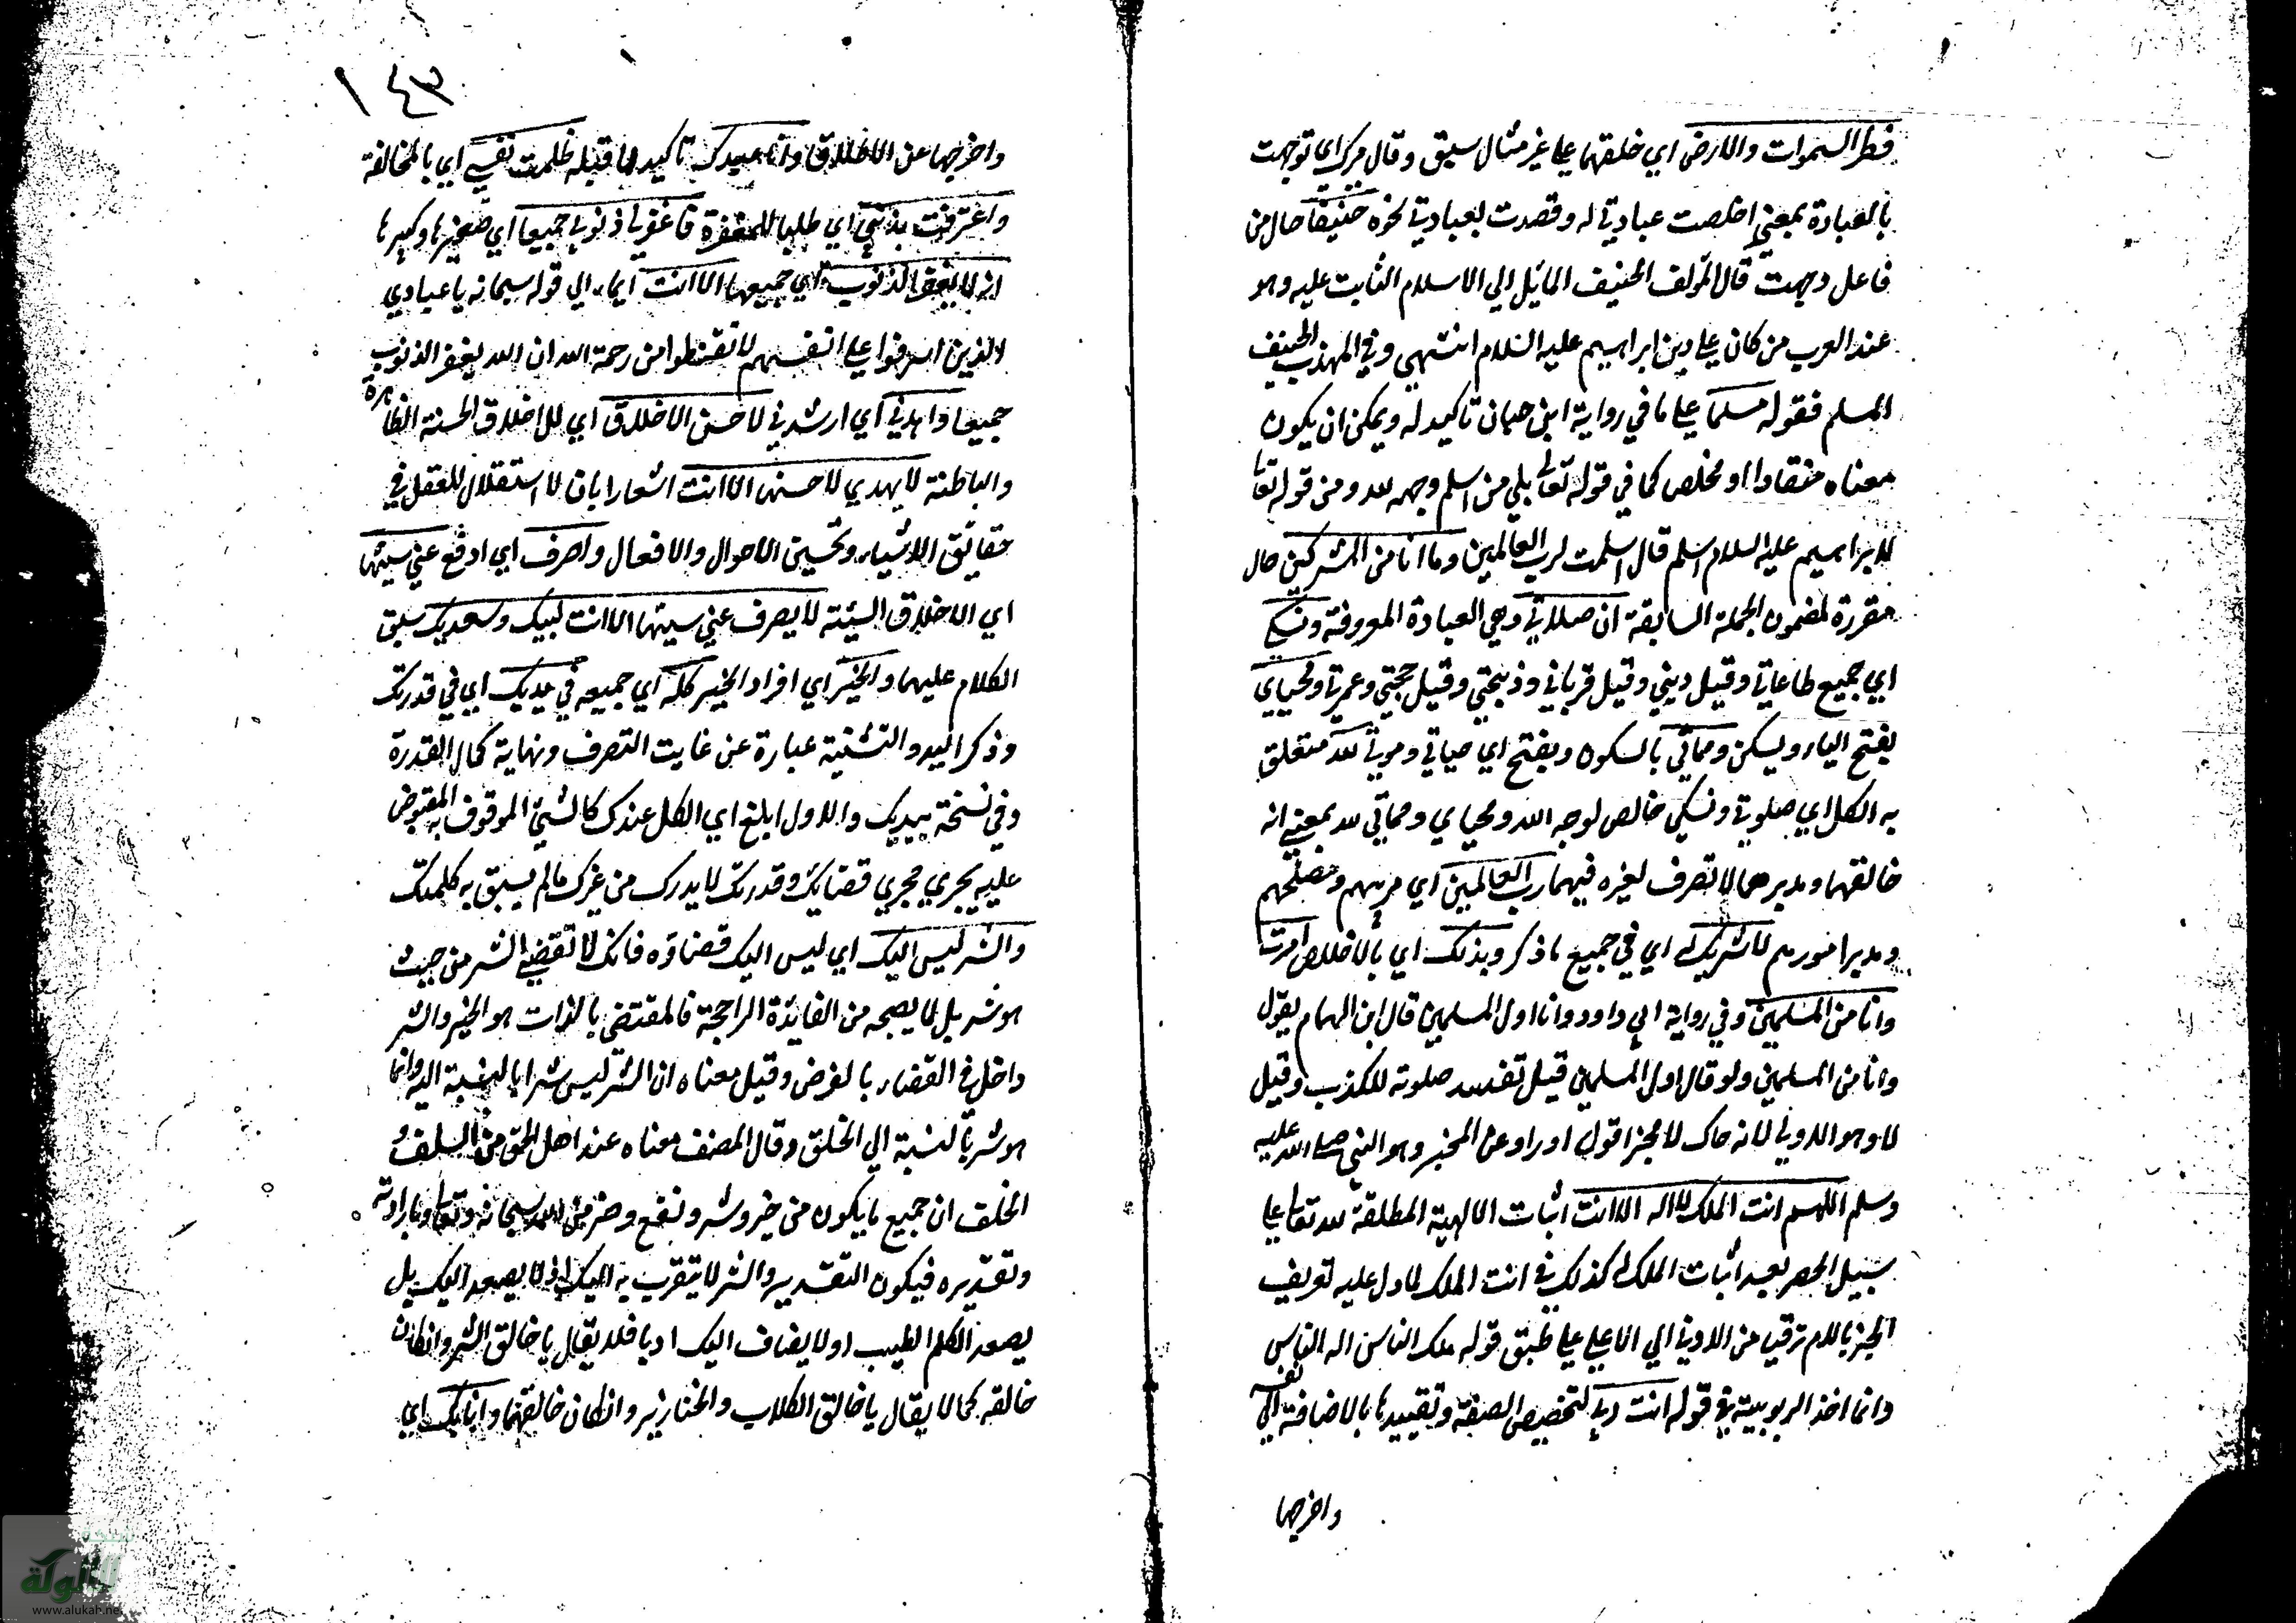 فطر السموات والارض اي خلقهما علي غير مثال سبق وقال ميرك اي توجهت
بالعبادة بمعني اخلصت عبادتي له وقصدت بعبادتي نحوه حنيفا حال من
فاعل وجهت قال المؤلف الحنيف المائل الي الاسلام الثابت عليه وهو
عند العرب من كان علي دين ابراهيم عليه السلام انتهي وفي المهذب الحنيف
المسلم فقوله مسلما علي ما في رواية ابن حبان تاكيد له ويمكن ان يكون
معناه منقادا او مخلص كما في قوله تعالي بلي من اسلم وجهه لله ومن قوله تعا
لابراهيم عليه السلام اسلم قال اسلمت لرب العالمين وما انا من المشركين حال
مقررة لمضمون الجملة السابقة ان صلاتي وهي العبادة المعروفة ونسكي
اي جميع طاعاتي وقيل ديني وقيل قرباني وذبيحتي وقيل حجتي وعمرتي ومحياي
بفتح الياء ويسكن ومماتي بالسكون وبفتح اي حياتي وموتي لله متعلق
به الكل اي صلوتي ونسكي خالص لوجه الله ومحياي ومماتي لله بمعني انه
خالقهما ومدبرهما لا تصرف لغيره فيهما رب العالمين اي مربيهم ومصلحهم
ومدبر امورهم لا شريك له اي في جميع ما ذكر وبذلك اي بالاخلاص امرت
وانا من المسلمين وفي رواية ابي داود وانا اول المسلمين قال ابن الهمام يقول
وانا من المسلمين ولو قال اول المسلمين قيل تفسد صلوته للكذب وقيل
لا وهو الاولي لانه حاك لا مخبر اقول او راو عن المخبر وهو النبي صلي الله عليه
وسلم اللهم انت الملك لا اله الا انت اثبات الالهية المطلقة لله تعالي علي
سبيل الحصر بعد اثبات الملك له كذلك في انت الملك لما دل عليه تعريف
الخبر باللام ترقيا من الادني الي الاعلي علي طبق قوله ملك الناس اله الناس
وانما اخذ الربوبية في قوله انت ربي لتخصيص الصفة وتقييدها بالاضافة الي نفسه
واخرجها
١٤٣
واخرجها عن الاطلاق وانا عبدك تاكيد لما قبله ظلمت نفسي اي بالمخالفة
واعترفت بذنبي اي طلبا للمغفرة فاغفر لي ذنوبي جميعا اي صغيرها وكبيرها
انه لا يغفر الذنوب اي جميعها الا انت ايماء الي قوله سبحانه يا عبادي
الذين اسرفوا علي انفسهم لا تقنطوا من رحمة الله ان الله يغفر الذنوب
جميعا واهدني اي ارشدني لاحسن الاخلاق اي للاخلاق الحسنة الظاهرة
والباطنة لا يهدي لاحسنها الا انت اشعارا بان لا استقلال للعقل في
حقائق الاشياء وتحسين الاحوال والافعال واصرف اي ادفع عني سيئها
اي الاخلاق السيئة لا يصرف عني سيئها الا انت لبيك وسعديك سبق
الكلام عليهما والخير اي افراد الخير كله اي جميعه في يديك اي في قدرتك
وذكر اليد والتثنية عبارة عن غايت التصرف ونهاية كمال القدرة
وفي نسخة بيديك والاول ابلغ اي الكل عندك كالشيء الموقوف به المقبوض
عليه يجري مجري قضائك وقدرتك لا يدرك من غيرك ما لم يسبق به كلمتك
والشر ليس اليك اي ليس اليك قضاؤه فانك لا تقضي الشر من حيث
هو شر بل لما يصحبه من الفائدة الراجحة فالمقتضي بالذات هو الخير والشر
داخل في القضاء بالعرض وقيل معناه ان الشر ليس شرا بالنسبة اليه وانما
هو شر بالنسبة الي الخلق وقال المصنف معناه عند اهل الحق من السلف و
الخلف ان جميع ما يكون من خير وشر ونفع وضر من الله سبحانه وتعا وبارادته
وتقديره فيكون التقدير والشر لا يتقرب به اليك او لا يصعد اليك بل
يصعد الكلم الطيب او لا يضاف اليك ادبا فلا يقال يا خالق الشر وان كان
خالقه كما لا يقال يا خالق الكلاب والخنازير وان كان خالقهما وانا بك اي
الألوكة
www.alukah.net